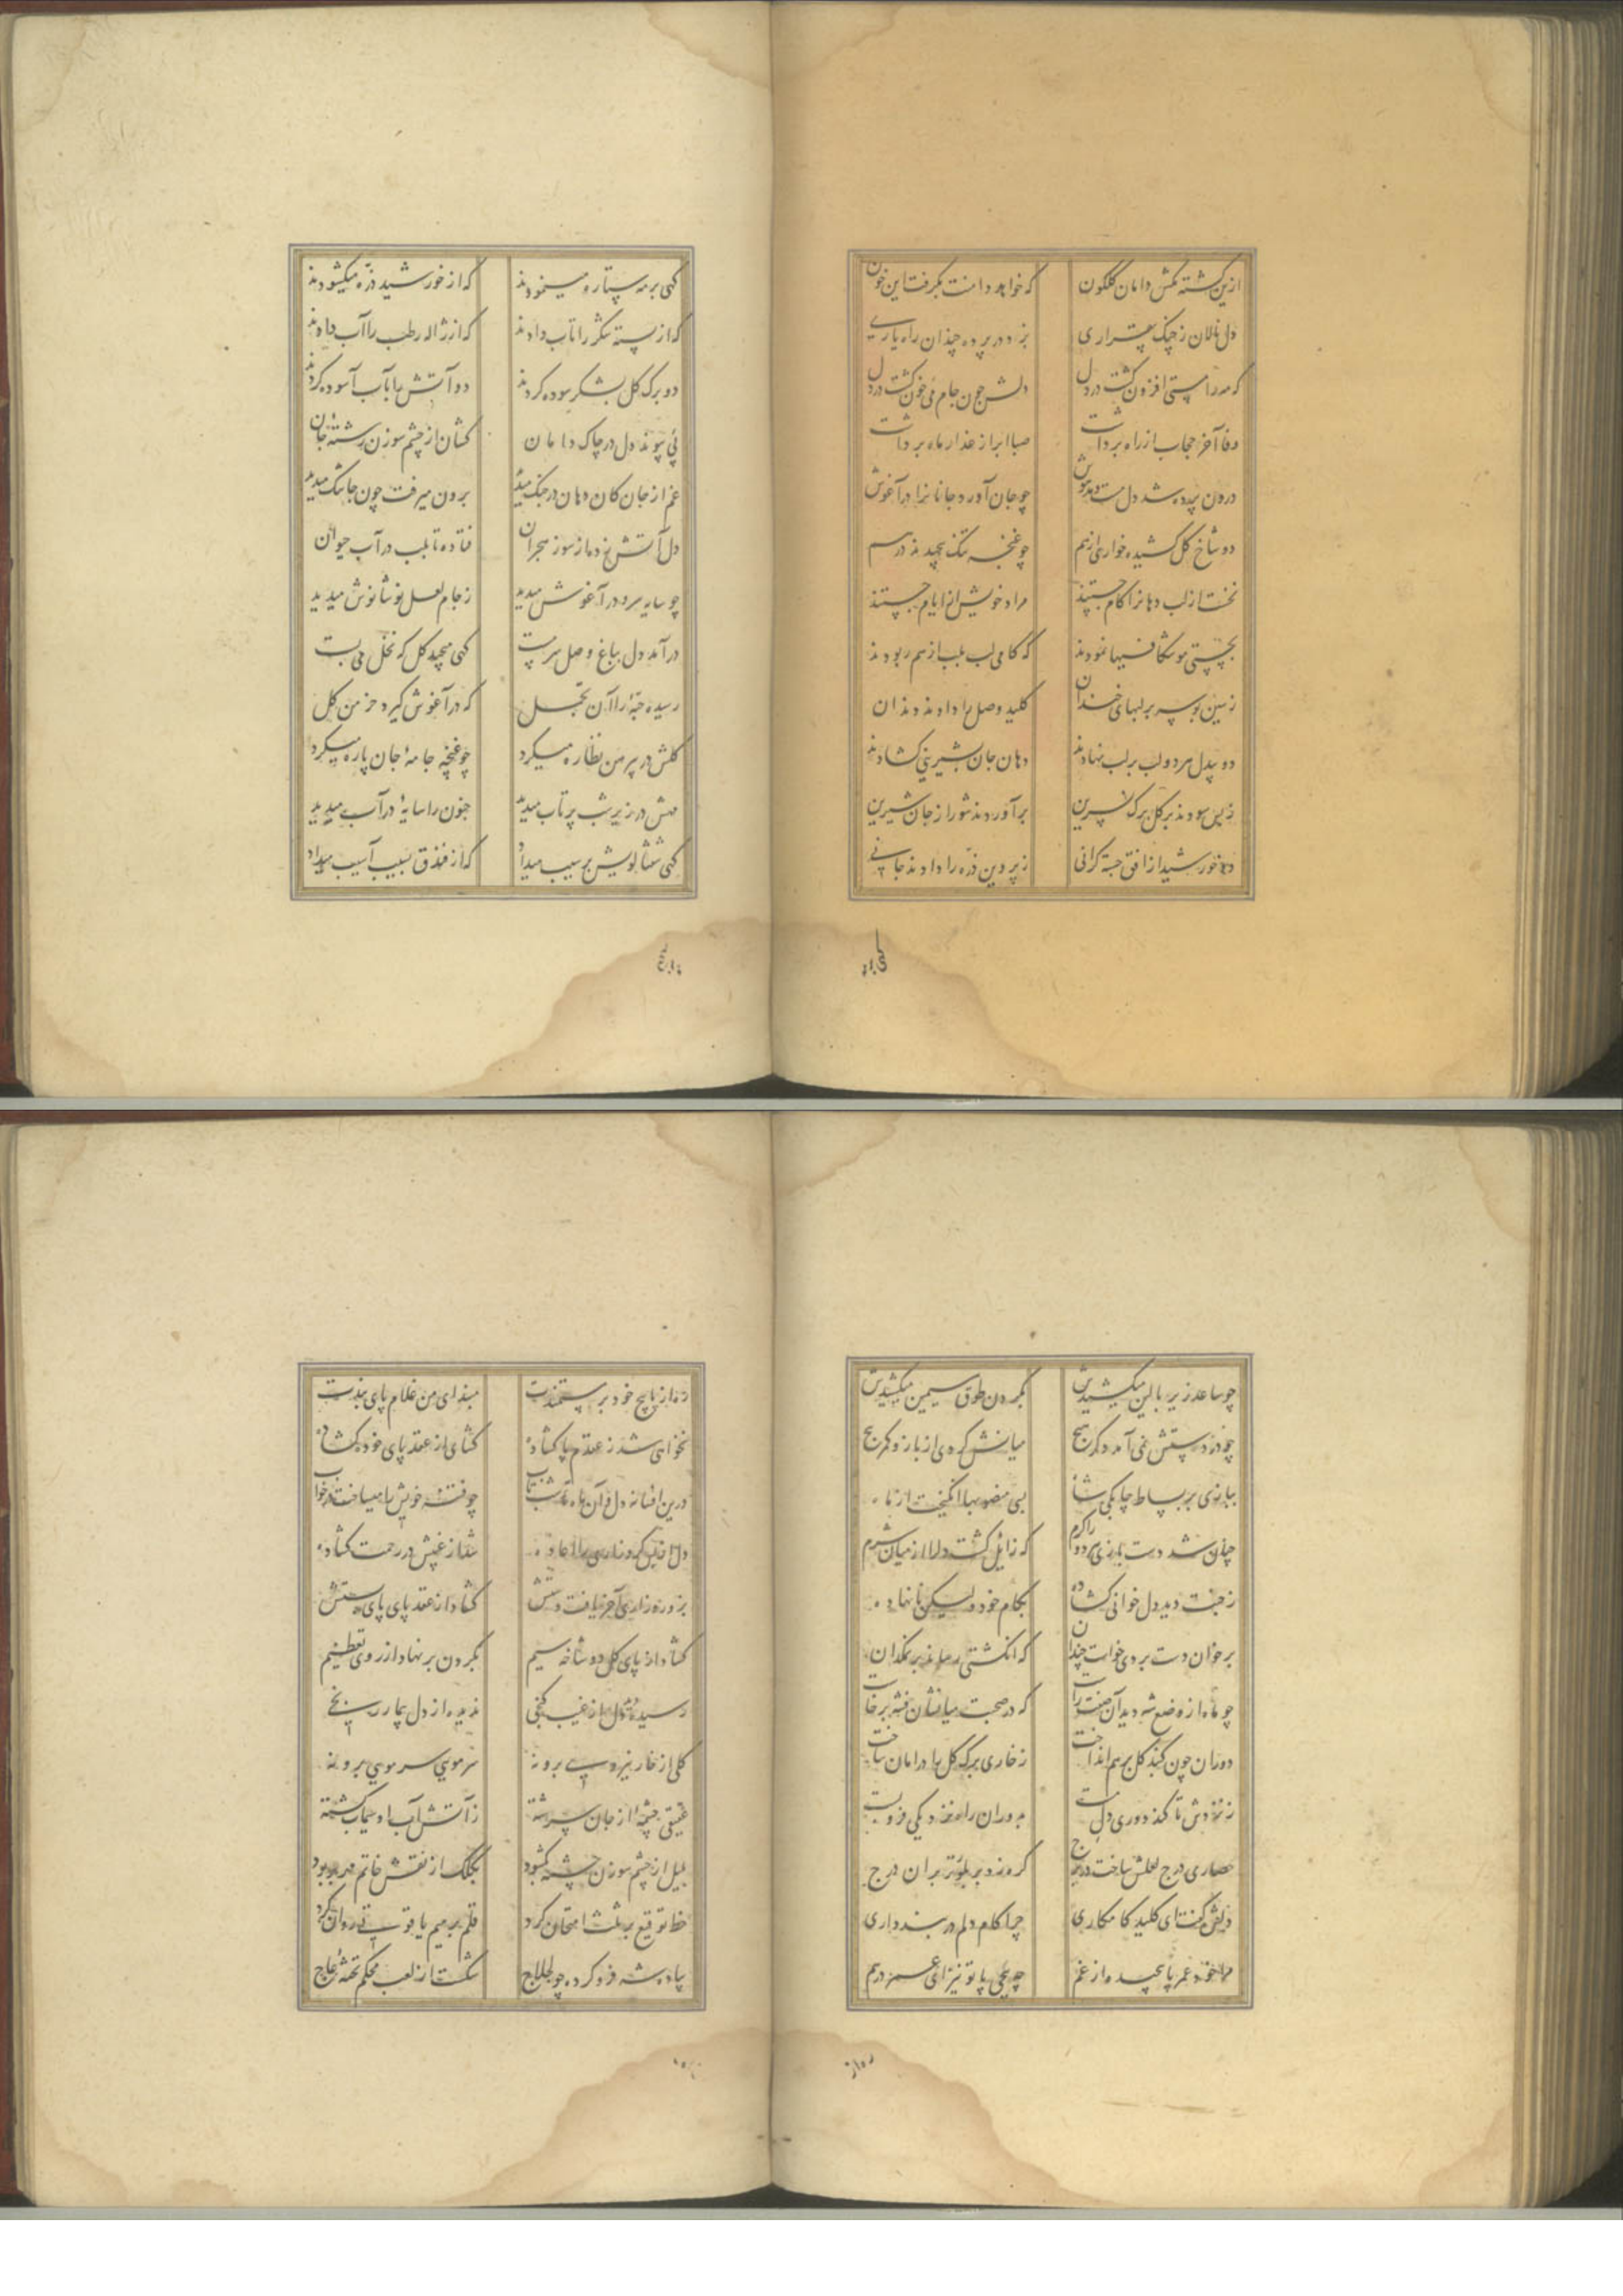 ازین کشته مکش دامان گلگون که خواهد دامنت بگرفت این خون
دل نالان ز چنگ بیقراری بزد در پرده چندان راه یاری
که مه را مستی افزون گشت در دل دلش چون جام می خون گشت در دل
وفا آخر حجاب از راه برداشت صبا ابر از عذار ماه برداشت
درون پرده شد دل مست و مدهوش چو جان آورد جانانرا در آغوش
دو شاخ گل کشیده خواری از هم چو غنچه تنگ پیچیدند در هم
نخست از لب دهانرا کام جستند مراد خویش از ایام جستند
بچستی موشکافیها نمودند که کامی لب بلب از هم ربودند
زمین بوسه بر لبهای خندان کلید وصل را دادند دندان
دو بیدل هر دو لب بر لب نهادند دهان جان بشیرینی گشادند
ز بس سودند بر گل برگ نسرین برآوردند شور از جان شیرین
دو خورشید از افق جسته کرانی ز پروین ذره را دادند جانی
کهی بر مه
کهی بر مه ستاره مینمودند که از خورشید ذره میگشودند
که از پسته شکر را تاب دادند که از ژاله رطب را آب دادند
دو برگ گل بشکر سوده کردند دو آتش را بآب آسوده کردند
پی پیوند دل در چاک دامان کشان از چشم سوزن رشته جان
غم از جان کان دهان در جنگ میدید برون میرفت چون جا تنگ میدید
دل آتش زده از سوز هجران فتاده تا بلب در آب حیوان
چو سایه سرو در آغوش میدید ز جام لعل نوشانوش میدید
درآمد دل بباغ وصل سرمست کهی میچید گل که نخل می‌بست
رسیده جبه را آن تجمل که در آغوش گیرد خرمن گل
گلش در پیرهن نظاره میکرد چو غنچه جامه جان پاره میکرد
مهش در زیر شب پرتاب میدید جنون را سایه در آب میدید
کهی شفتالویش بر سیب میداد که از فندق بسیب آسیب میداد
چو ساعد زیر بالین میکشیدش بگردن طوق سیمین میکشیدش
چو زر در دستش نمی آمد دگر هیچ میانش کردی از بازو کمر پیچ
ببازی بر بساط چابکی شاه بسی منصوبها انگیخت از ماه
چنان شد دست بازی هر دو را گرم که زایل گشت دل را از میان شرم
ز جنت دید دل خوانی گشاده بکام خود ولیکن نا نهاده
بر خوان دست بردی خواست چندان که انگشتی رساند بر نمکدان
چو ماه از وضع شه دید آن صفت راست که در صحبت میانشان فتنه برخاست
دو ران چون گنبد گل بر هم انداخت ز خاری برگ گل را در امان ساخت
حصاری درج لعلش ساخت در برج گره زد بر بلورتر بران درج
ملک گفت ای کلید کامکاری چرا کام دلم در بند داری
مرا خود عمر پا پیچیده از غم چه پیچی پا تو نیز ای عمر در هم
ره از
ره از پاپیچ خود بر مستمندت مبند ای من غلام پای بندت
نخواهی شد ز عقدم پا گشاده گشای از عقد پای خود گشاده
درین افسانه دل و آن ماه در تاب چو فتنه خویش را میساخت در خواب
شد از غیبش در رحمت گشاده
بزور و زاری آخر یافت دستش گشاد از عقد پای پای بستش
گشاد از پای گل دو شاخه سیم بگردن بر نهاد از روی تعظیم
رسیده دل از غیب گنجی ندیده از دل بیمار رنجی
گلی از خار نیزه پی برونه سر موی سر موی برونه
عقیقی چشمه از جان سرشته ز آتش آب او سیماب گشته
بمیل از چشم سوزن چشمه بگشود بکلک از نقش خاتم مهر بربود
خط توقیع بر ثلث امتحان کرد قلم بر میم یاقوتی روان کرد
پیاده شه فرو کرده چو لجلاج شکست از لعب محکم تخته عاج